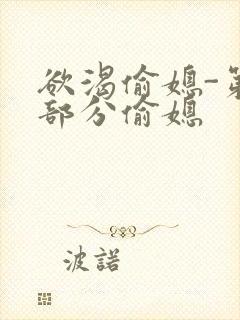 欲渴偷媳-第
部分偷媳
波諾